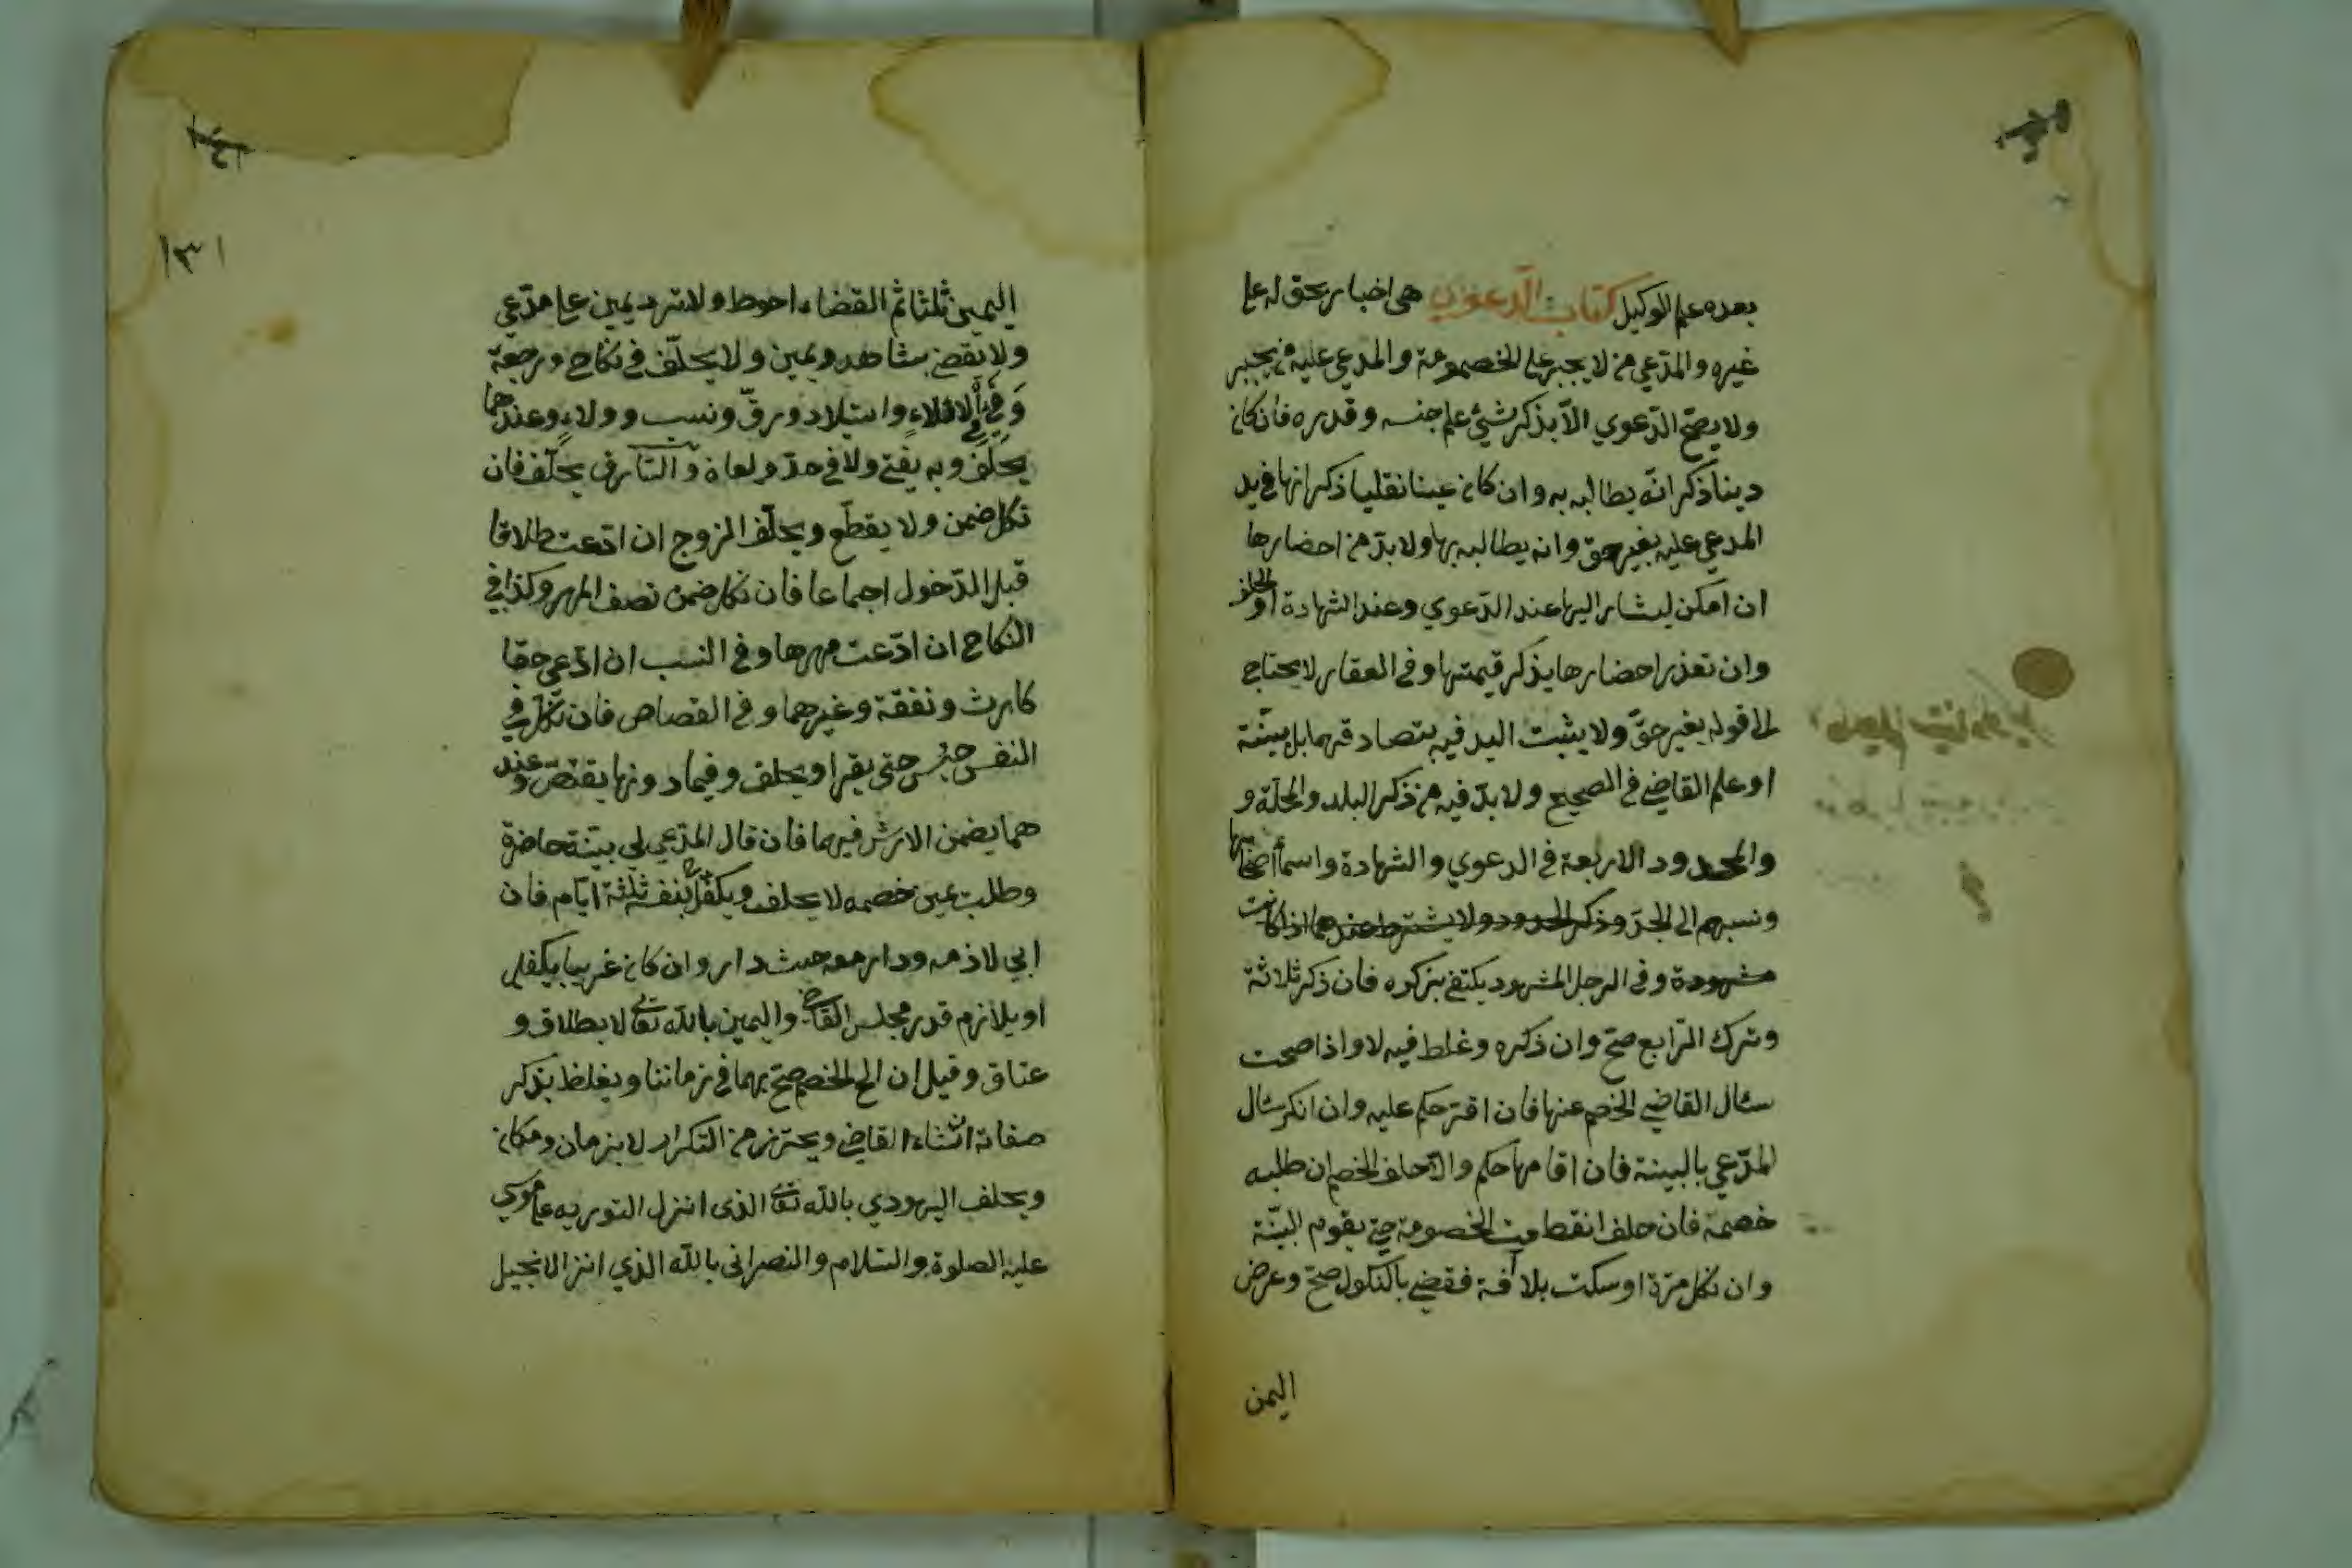 بعده على الوكيل كتاب الدعوي هى اخبار بحق له على
غيره والمدّعي من لا يجبر على الخصومة والمدعي عليه من يجبر
ولا يصحّ الدّعوي الاّ بذكر شيئ علم جنسه وقدره فان كان
دينا ذكر انّه يطالبه به وان كان عينا نقليا ذكر انها في يد
المدعي عليه بغير حق وانه يطالبه بها ولا بدّ من احضارها
ان امكن ليشار اليها عند الدّعوي وعند الشهادة او الحلف
وان تعذر احضارها يذكر قيمتها وفي العقار لا يحتاج
الى قوله بغير حقّ ولا يثبت اليد فيه بتصادقهما بل ببيّنة
او علم القاضي في الصحيح ولا بدّ فيه من ذكر البلد والمحلّة و
والحدود الاربعة في الدعوي والشهادة واسماء اصحابها
ونسبهم الى الجدّ وذكر الحدود ولا يشترط عندهما اذا كانت
مشهودة وفي الرجل المشهود يكتفي بذكره فان ذكر ثلاثة
وترك الرّابع صحّ وان ذكره وغلط فيه لا واذا صحت
سئال القاضي الخصم عنها فان اقرّ حكم عليه وان انكر سئال
المدّعي بالبينة فان اقامها حكم والاّ حلف الخصم ان طلبه
خصمه فان حلف انقطعت الخصومة حتي يقوم البيّنة
وان نكل مرّة او سكت بلا آفة فقضي بالنكول صحّ وعرض
اليمن
١٣١
اليمين ثلثا ثم القضاء احوط ولا ترد يمين على مدّعي
ولا نقضي بشاهد ويمين ولا يحلّف في نكاح ورجعة
وفي الايلاء واستيلاد ورقّ ونسب وولاء وعندهما
يحلّف وبه يفتي ولا في حدّ ولعان والسّارق يحلّف فان
نكل ضمن ولا يقطّع ويحلّف الزوج ان ادّعت طلاقا
قبل الدّخول اجماعا فان نكل ضمن نصف المهر وكذا في
النكاح ان ادّعت مهرها وفي النسب ان ادّعي حقا
كارث ونفقة وغيرهما وفي القصاص فان نكل في
النفس حبس حتى يقر او يحلف وفيما دونها يقتصّ وعند
هما يضمن الارش فيهما فان قال المدّعي لي بيّنة حاضرة
وطلب يمين خصمه لا يحلف ويكفّل بنفسه ثلثة ايّام فان
ابي لازمه ودار معه حيث دار وان كان غريبا يكفل
او يلازم قدر مجلس القاضي واليمين بالله تعالى لا بطلاق و
عتاق وقيل ان الح الخصم صحّ بهما في زماننا ويغلظ بذكر
صفاته ان شاء القاضي ويحترز من التكرار لا بزمان ومكان
ويحلف اليهودي بالله تعالى الذى انزل التوريه على موسي
عليه الصلوة والسّلام والنصرانى بالله الذي انزل الانجيل